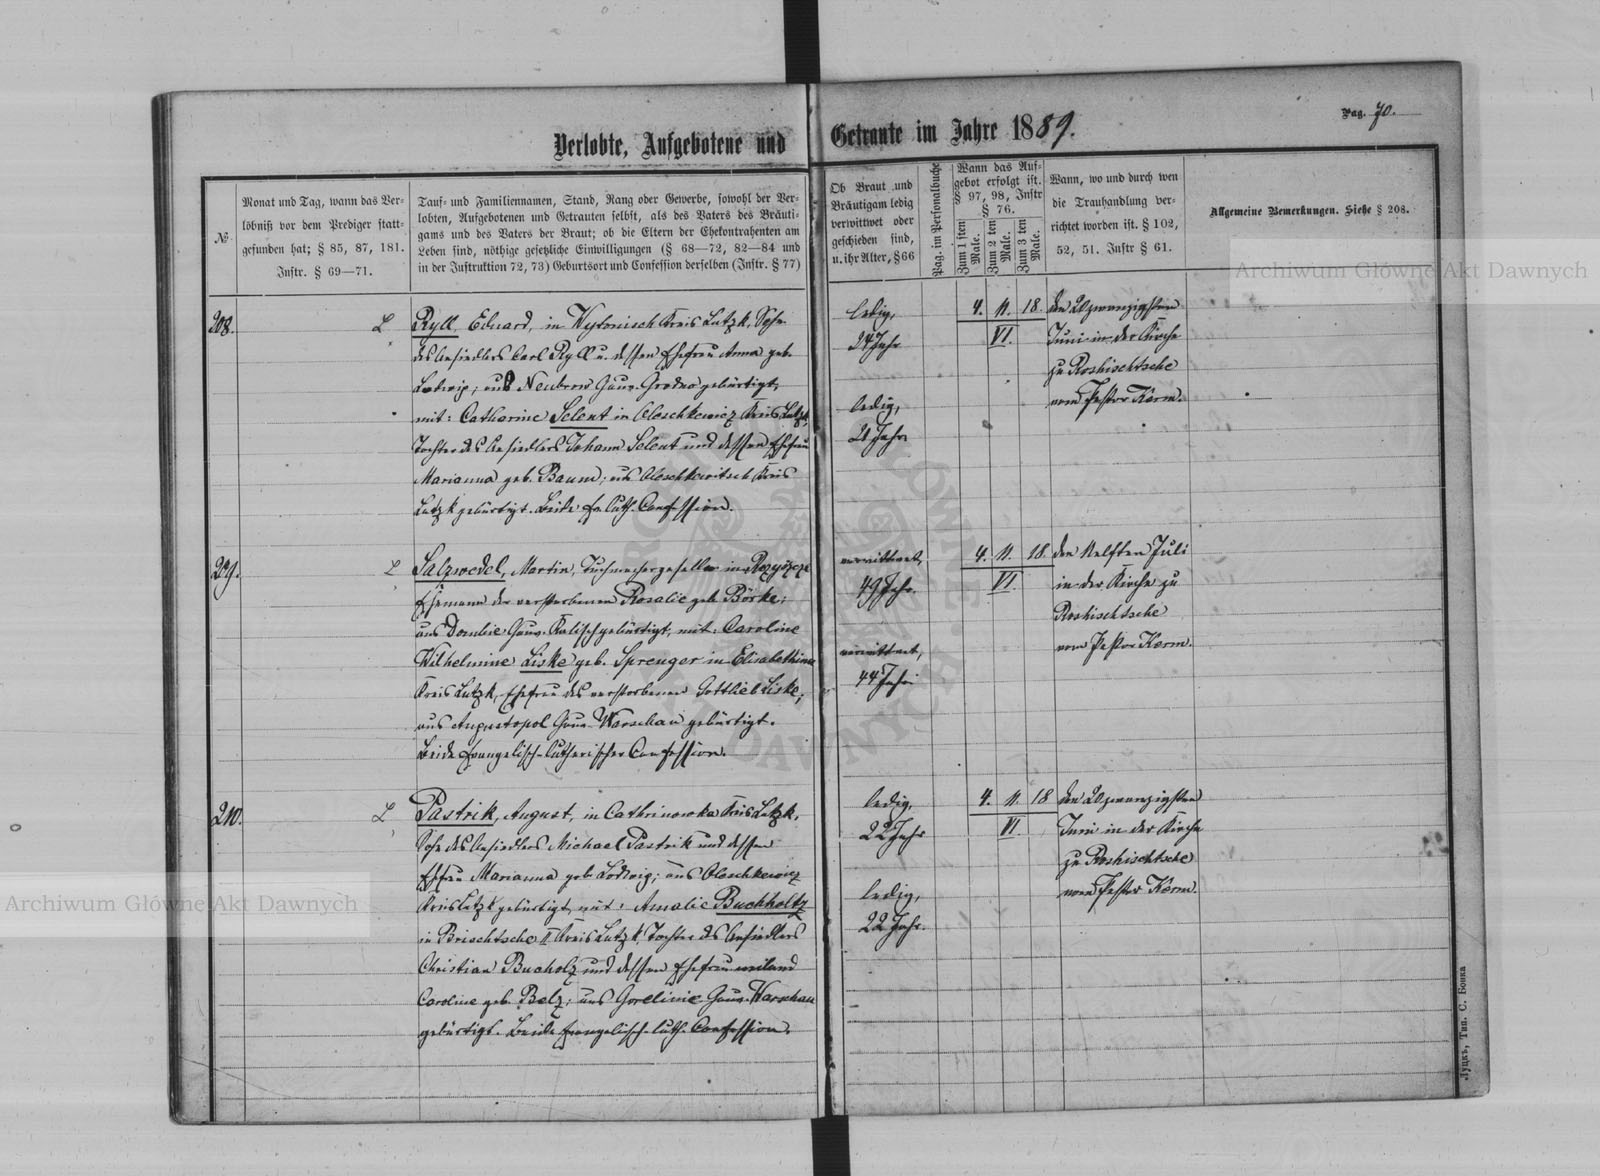 Pag. 70.
Verlobte, Aufgebotene und Getraute im Jahre 1889.
№
Monat und Tag, wann das Ver-
löbniß vor dem Prediger statt-
gefunden hat; § 85, 87, 181.
Instr. § 69—71.
Tauf- und Familiennamen, Stand, Rang oder Gewerbe, sowohl der Ver-
lobten, Aufgebotenen und Getrauten selbst, als des Vaters des Bräuti-
gams und des Vaters der Braut; ob die Eltern der Ehekontrahenten am
Leben sind, nöthige gesetzliche Einwilligungen (§ 68—72, 82—84 und
in der Instruktion 72, 73) Geburtsort und Confession derselben (Instr. § 77)
Ob Braut und
Bräutigam ledig
verwittwet oder
geschieden sind,
u. ihr Alter, § 66
Pag. im Personalbuche
Wann das Auf-
gebot erfolgt ist.
§ 97, 98, Instr
§ 76.
Zum 1 sten
Male.
Zum 2 ten
Male.
Zum 3 ten
Male.
Wann, wo und durch wen
die Trauhandlung ver-
richtet worden ist. § 102,
52, 51. Instr § 61.
Allgemeine Bemerkungen. Siehe § 208.
208.
L
Ryll, Eduard, in Wytonisch Kreis Lutzk, Sohn
des Ansiedlers Carl Ryll u. dessen Ehefrau Anna geb.
Ludwig; aus Neubrow Gouv. Grodno gebürtigt,
mit: Catharine Selent in Oleschkewicz Kreis Lutzk,
Tochter des Ansiedlers Johann Selent und dessen Ehefrau
Marianna geb. Baum; aus Oleschkewitsch Kreis
Lutzk gebürtigt. Beide ev. luth. Confession.
ledig,
24 Jahr
ledig,
21 Jahr
4. 11. 18.
VI.
den 20zwanzigsten
Juni in der Kirche
zu Roshischtsche
vom Pastor Kerm.
209.
L
Salzwedel, Martin, Tuchmachergeselle in Rozyszcze
Ehemann der verstorbenen Rosalie geb. Börke;
aus Dombie Gouv. Kalisch gebürtigt, mit: Caroline
Wilhelmine Liske geb. Sprenger in Elisabethina
Kreis Lutzk, Ehefrau des verstorbenen Gottlieb Liske;
aus Augustopol Gouv. Warschau gebürtigt.
Beide Evangelisch-lutherischer Confession.
verwittwet,
49 Jahr.
verwittwet,
44 Jahr
4. 11. 18.
VI.
den Uelften Juli
in der Kirche zu
Roshischtsche
vom Pastor Kerm.
210.
L
Pastrik, August, in Cathrinowka Kreis Lutzk,
Sohn des Ansiedlers Michael Pastrik und dessen
Ehefrau Marianna geb. Ludwig; aus Oleschkewicz
Kreis Lutzk gebürtigt, mit: Amalie Buchholtz
in Brischtsche II Kreis Lutzk, Tochter des Ansiedlers
Christian Bucholz und dessen Ehefrau weiland
Caroline geb. Belz; aus Gorelinie Gouv. Warschau
gebürtigt. Beide Evangelisch-luth. Confession.
ledig,
22 Jahr
ledig,
22 Jahr.
4. 11. 18
VI.
den 20zwanzigsten
Juni in der Kirche
zu Roshischtsche
vom Pastor Kerm.
Луцкъ, Тип. С. Бонка
Archiwum Główne Akt Dawnych
Archiwum Główne Akt Dawnych